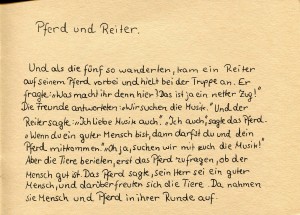 Pferd und Reiter.
Und als die fünf so wanderten, kam ein Reiter
auf seinem Pferd vorbei und hielt bei der Truppe an. Er
fragte: »Was macht ihr denn hier? Das ist ja ein netter Zug!"
Die Freunde antworteten: »Wir suchen die Musik." Und der
Reiter sagte: »Ich liebe Musik auch". »Ich auch", sagte das Pferd.
»Wenn du ein guter Mensch bist, dann darfst du und dein
Pferd mitkommen." »Oh ja, suchen wir mit euch die Musik!"
Aber die Tiere berieten, erst das Pferd zu fragen, ob der
Mensch gut ist. Das Pferd sagte, sein Herr sei ein guter
Mensch, und darüber freuten sich die Tiere. Da nahmen
sie Mensch und Pferd in ihrer Runde auf.